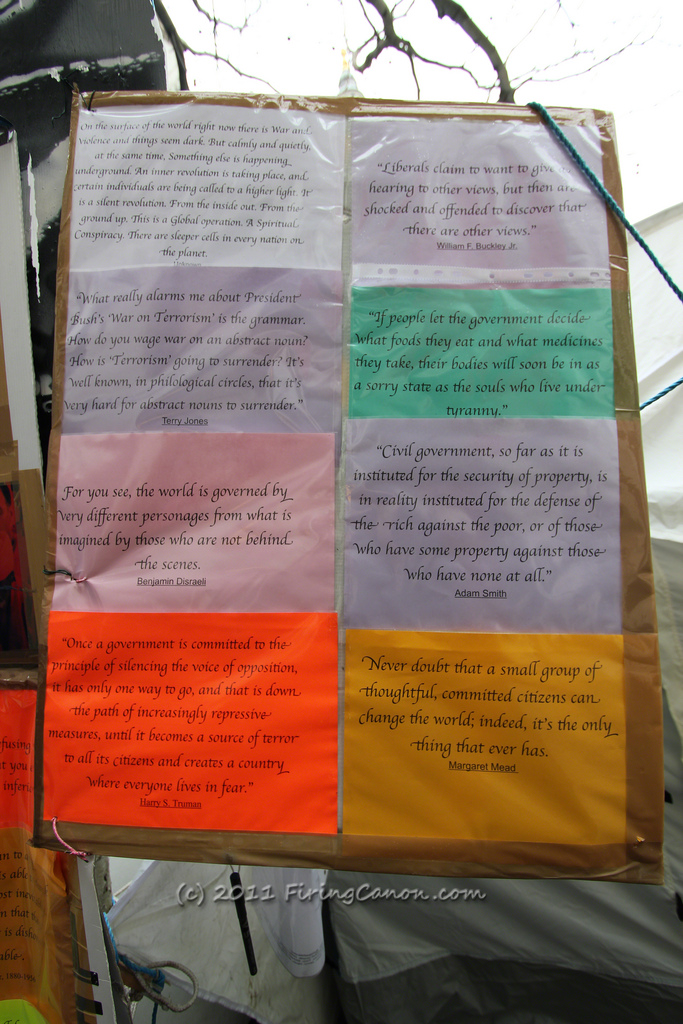 On the surface of the world right now there is War and
violence and things seem dark. But calmly and quietly,
at the same time, Something else is happening
underground. An inner revolution is taking place, and
certain individuals are being called to a higher light. It
is a silent revolution. From the inside out. From the
ground up. This is a Global operation. A Spiritual
Conspiracy. There are sleeper cells in every nation on
the planet.
Unknown
"What really alarms me about President
Bush's 'War on Terrorism' is the grammar.
How do you wage war on an abstract noun?
How is 'Terrorism' going to surrender? It's
well known, in philological circles, that it's
very hard for abstract nouns to surrender."
Terry Jones
For you see, the world is governed by
very different personages from what is
imagined by those who are not behind
the scenes.
Benjamin Disraeli
"Once a government is committed to the
principle of silencing the voice of opposition,
it has only one way to go, and that is down
the path of increasingly repressive
measures, until it becomes a source of terror
to all its citizens and creates a country
where everyone lives in fear."
Harry S. Truman
"Liberals claim to want to give
hearing to other views, but then are
shocked and offended to discover that
there are other views."
William F. Buckley Jr.
"If people let the government decide
what foods they eat and what medicines
they take, their bodies will soon be in as
a sorry state as the souls who live under
tyranny."
"Civil government, so far as it is
instituted for the security of property, is
in reality instituted for the defense of
the rich against the poor, or of those
who have some property against those
who have none at all."
Adam Smith
Never doubt that a small group of
thoughtful, committed citizens can
change the world; indeed, it's the only
thing that ever has.
Margaret Mead
(c) 2011 FiringCanon.com